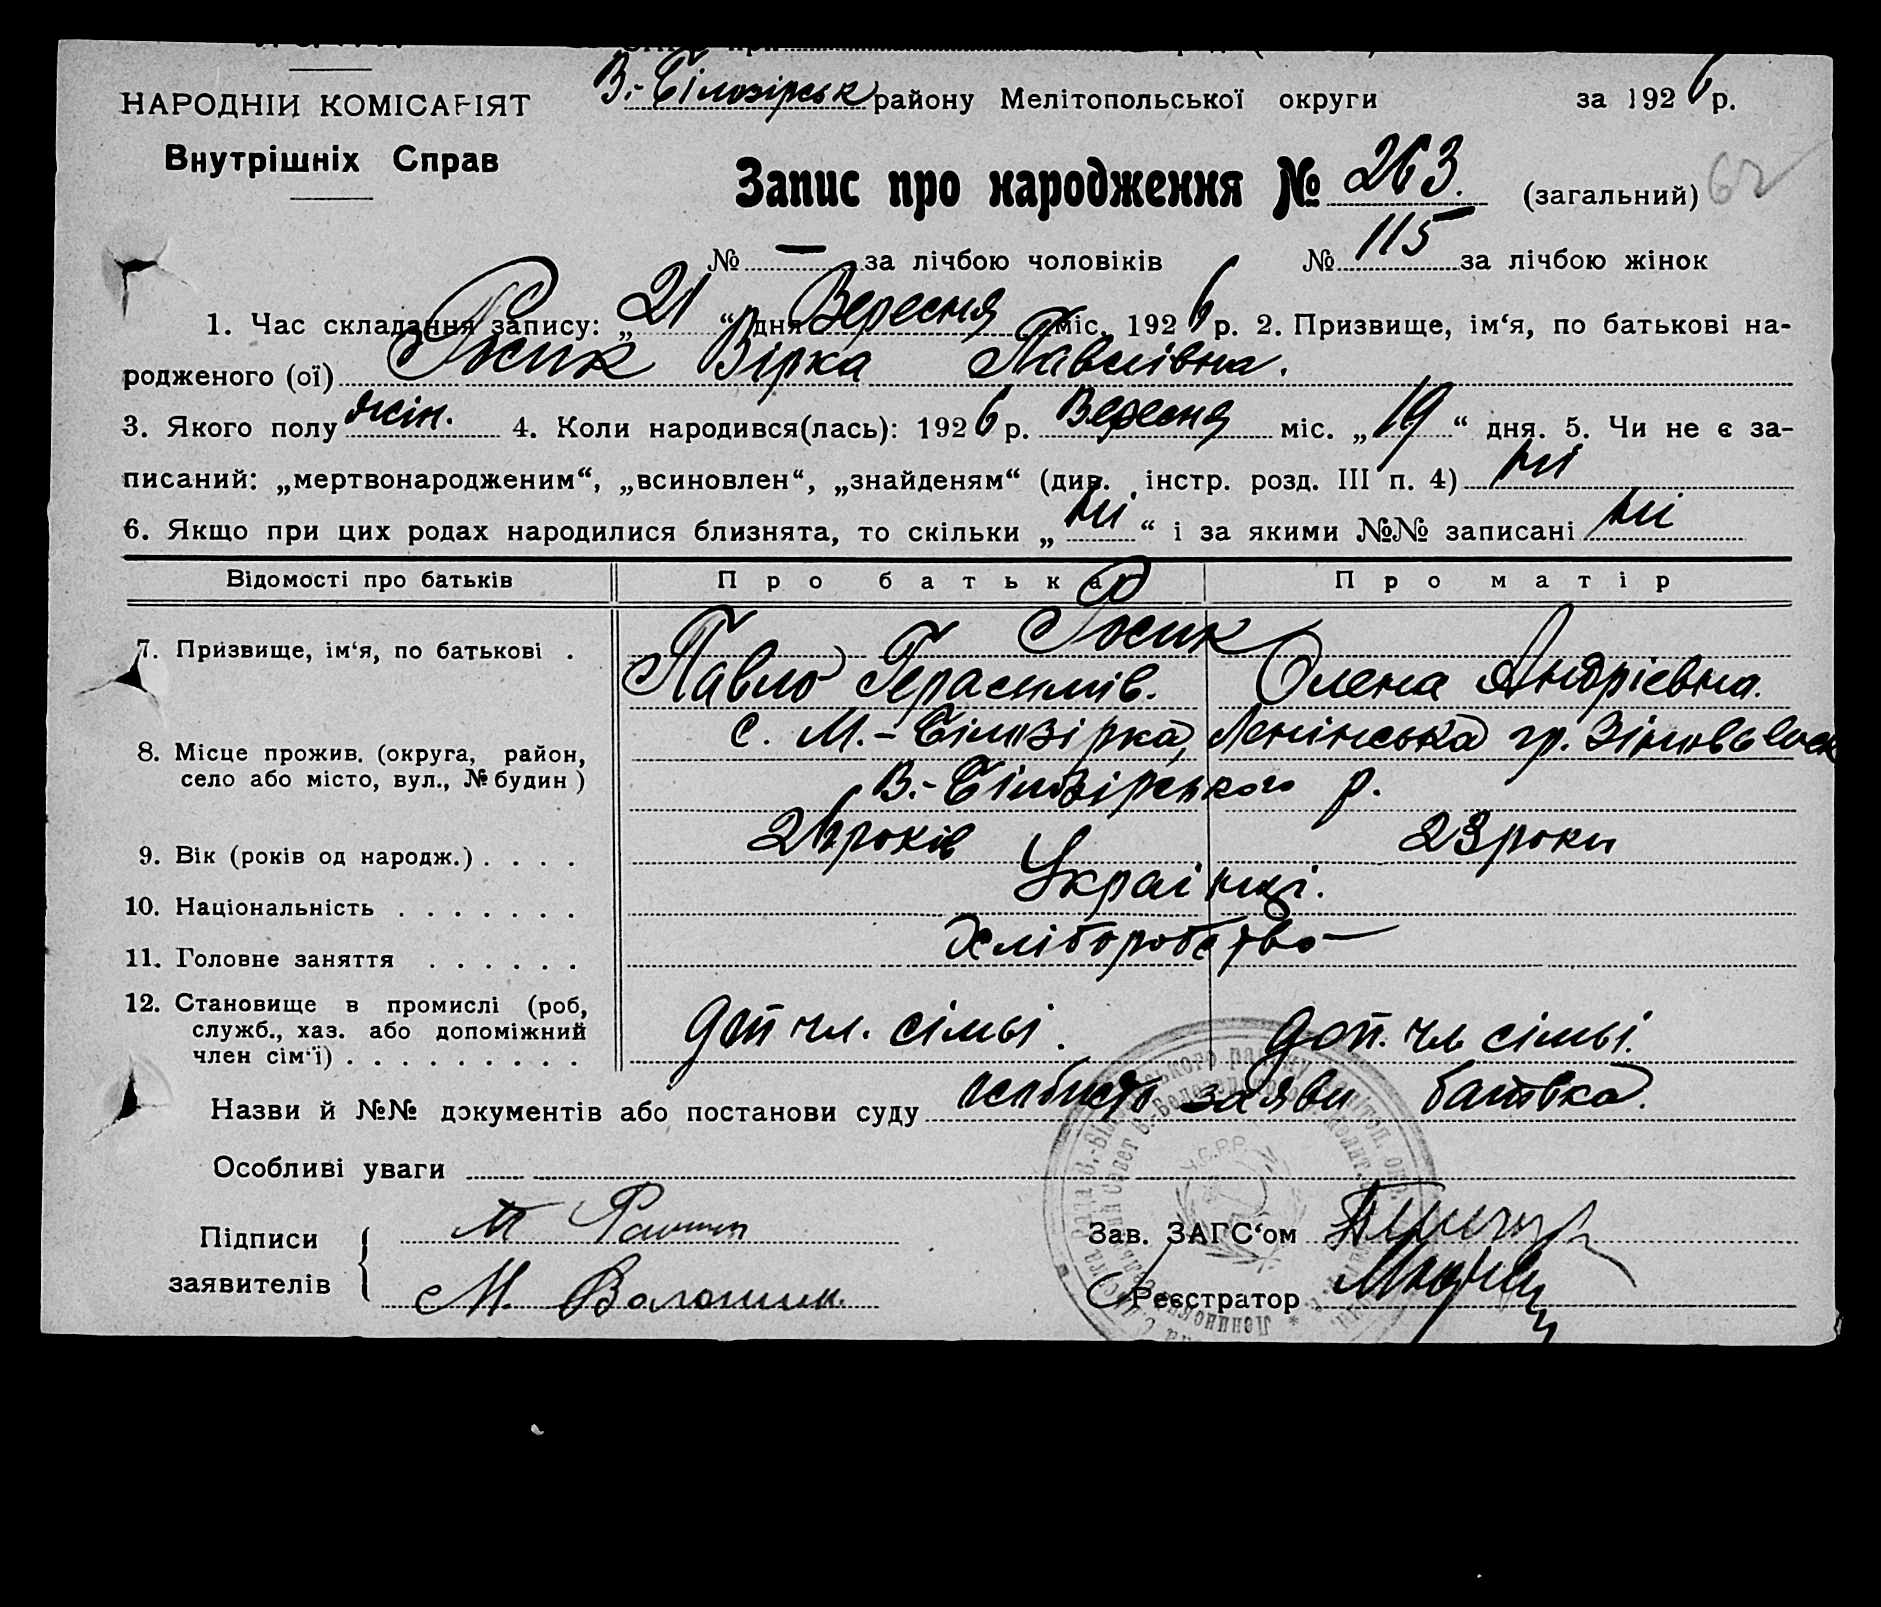 В.-Білозірськ району Мелітопольської округи за 1926 р.
НАРОДНІЙ КОМІСАРІЯТ
Внутрішніх Справ
Запис про народження № 263. (загальний) 62
№ — за лічбою чоловіків № 115 за лічбою жінок
1. Час складання запису: „21“ дня Вересня міс. 1926 р. 2. Призвище, ім‘я, по батькові на-
родженого (ої) Росик Вірка Павлівна.
3. Якого полу жін. 4. Коли народився(лась): 1926 р. Вересня міс. „19“ дня. 5. Чи не є за-
писаний: „мертвонародженим“, „всиновлен“, „знайденям“ (див. інстр. розд. III п. 4) ні
6. Якщо при цих родах народилися близнята, то скільки „ні“ і за якими №№ записані ні
Відомості про батьків Про батька Про матір
Росик
7. Призвище, ім‘я, по батькові . Павло Герасимів. Олена Андрієвна.
8. Місце прожив. (округа, район, с. М.-Білозірка, Ленінська
село або місто, вул., № будин ) В.-Білозірського р.
9. Вік (років од народж.) . . . . 26 років 23 роки
10. Національність . . . . . . . Українці.
11. Головне заняття . . . . . . Хліборобство
12. Становище в промислі (роб,
служб., хаз. або допоміжний доп чл. сімьі. доп. чл сімьі.
член сім‘ї) . . . . . . . . .
Назви й №№ документів або постанови суду особиста заяви батька.
Особливі уваги
Підписи
заявителів
М. Волошин.
Зав. ЗАГС‘ом
Реєстратор
У.С.Р.Р.